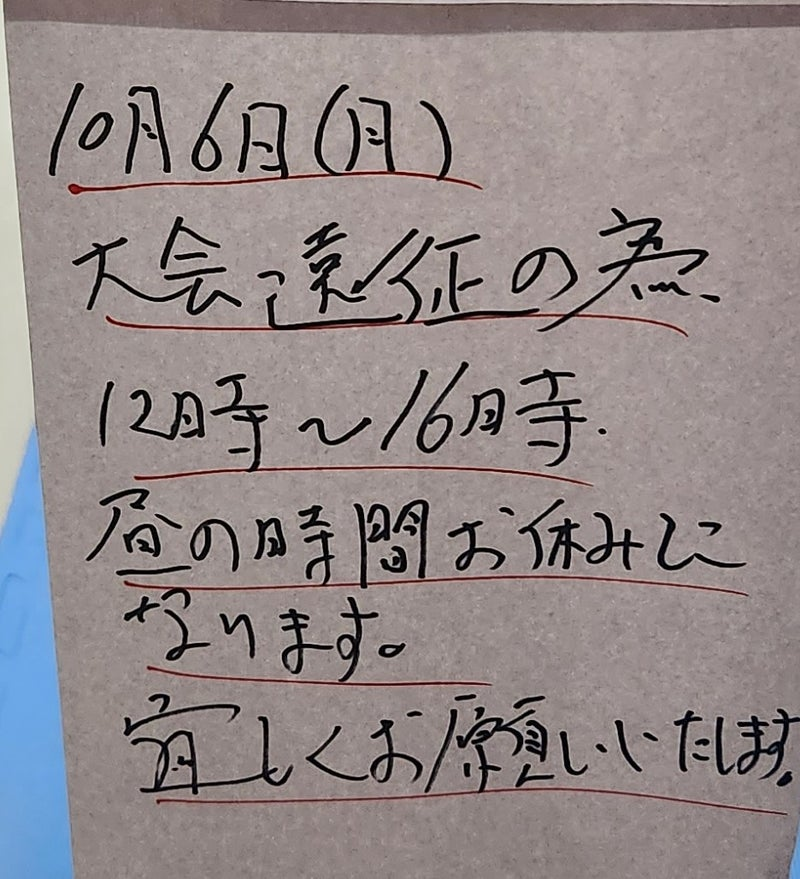 10月6日(月)
大会遠征の為
12時～16時.
昼の時間お休みに
なります。
宜しくお願いいたします。